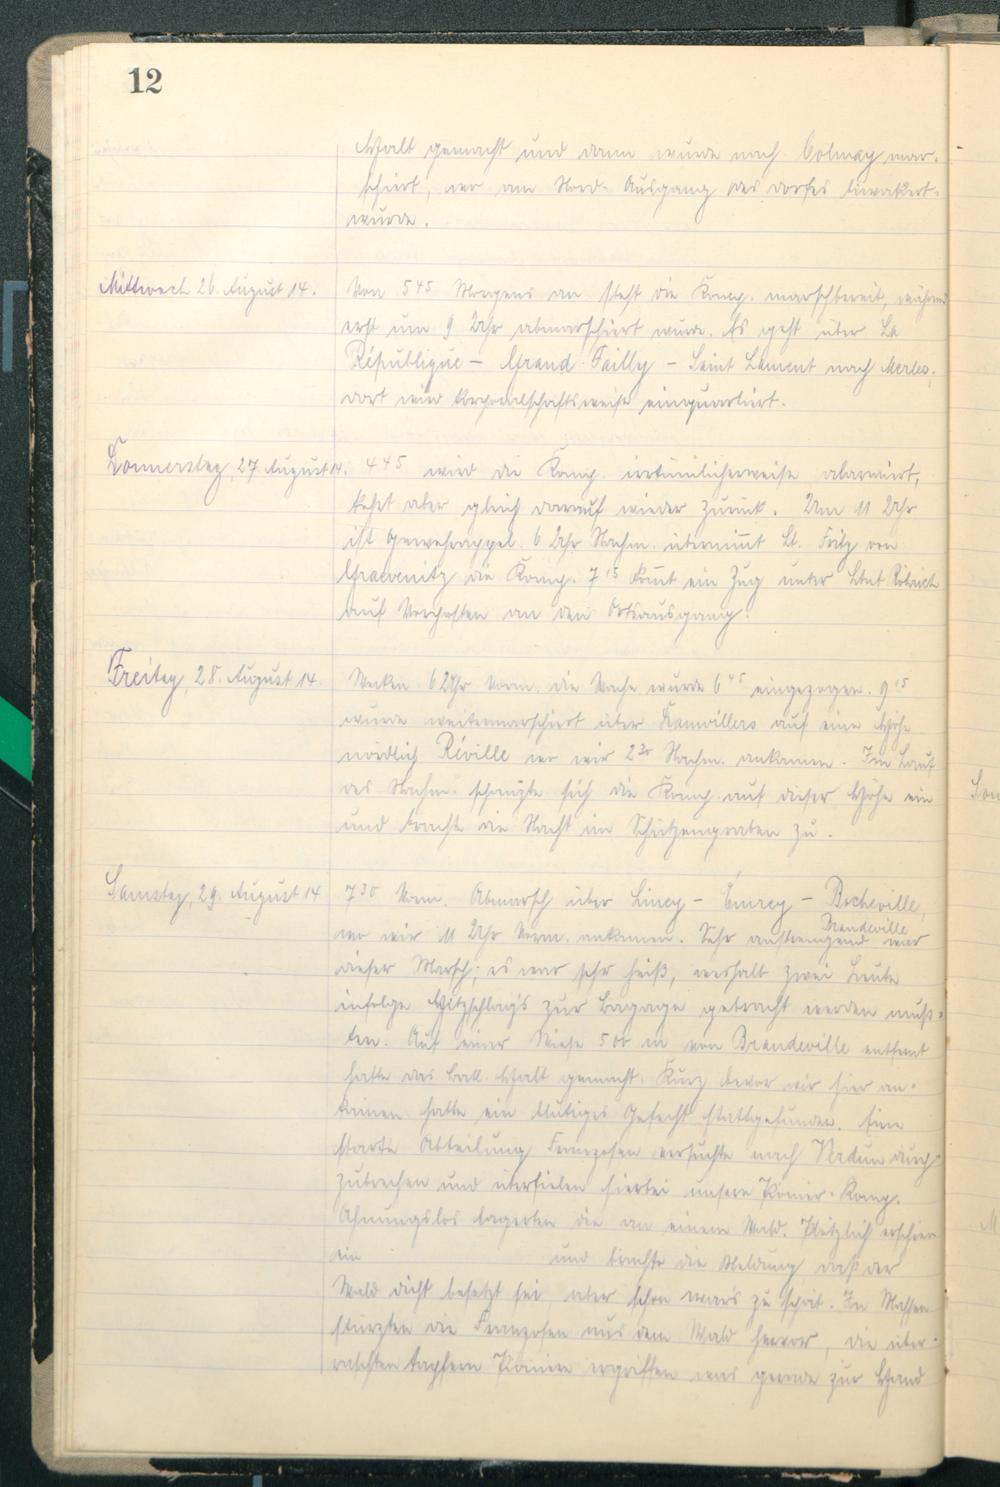 12
Halt gemacht und dann wurde nach Colmey mar-
schiert, wo am Nord-Ausgang des Dorfes biwakiert
wurde.
Mittwoch 26. August 14. Von 5 45 Morgens an steht die Komp. marschbereit, während
erst um 9 Uhr abmarschiert wurde. Es geht über La
République - Grand-Failly - Saint Laurent nach Merles,
dort wird einquartiert.
Donnerstag, 27. August 14. 4 45 wird die Komp. irrtümlicherweise alarmiert,
kehrt aber gleich darauf wieder zurück. Um 11 Uhr
ist Gewehrappel. 6 Uhr Nachm. übernimt Lt. Fritz von
Graevenitz die Komp. 7 15 komt ein Zug unter Ltnt
auf Vorposten an den Ortsausgang.
Freitag, 28. August 14. Wecken 6 Uhr Vorm. die Wache wurde 6 45 eingezogen. 9 15
wurde weitermarschiert über auf eine Höhe
nördlich Réville wo wir 2 30 Nachm. ankamen. Im Lauf
des Nachm. schanzte sich die Komp. auf dieser Höhe ein
und brachte die Nacht im Schützengraben zu.
Samstag, 29. August 14 7 30 Vorm. Abmarsch über Lincy - - Bocheville,
Brandeville
wo wir 11 Uhr Vorm. ankamen. Sehr anstrengend war
dieser Marsch; es war sehr heiß, weshalb zwei Leute
infolge Hitzschlag's zur Bagage gebracht werden muß-
ten. Auf einer Wiese 500 m von Brandeville entfernt
hatte das Batl. Halt gemacht. Kurz bevor wir hier an-
kamen hatte ein blutiges Gefecht stattgefunden. Eine
starke Abteilung Franzosen versuchte nach Verdun durch
zubrechen und überfielen hierbei unsere Pionier-Komp.
Ahnungslos lagerten die an einem Wald. Plötzlich erschien
ein und brachte die Meldung, daß der
Wald dicht besetzt sei, aber schon war's zu spät. In Massen
stürzten die Franzosen aus dem Wald hervor, die über-
raschten tapfern Pioniere ergriffen was gerade zur Hand